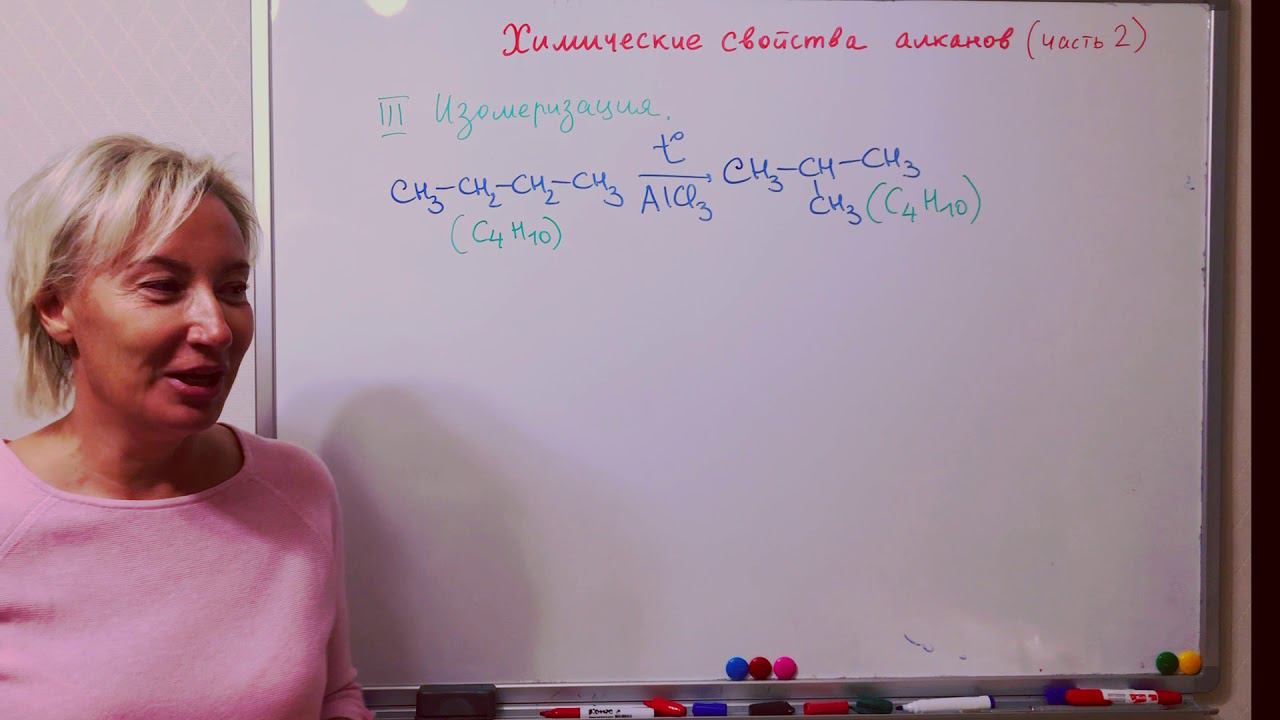 Химические свойства алканов (часть 2)
III Изомеризация.
CH3–CH2–CH2–CH3 t° → AlCl3 CH3–CH–CH3
CH3 (C4H10)
(C4H10)